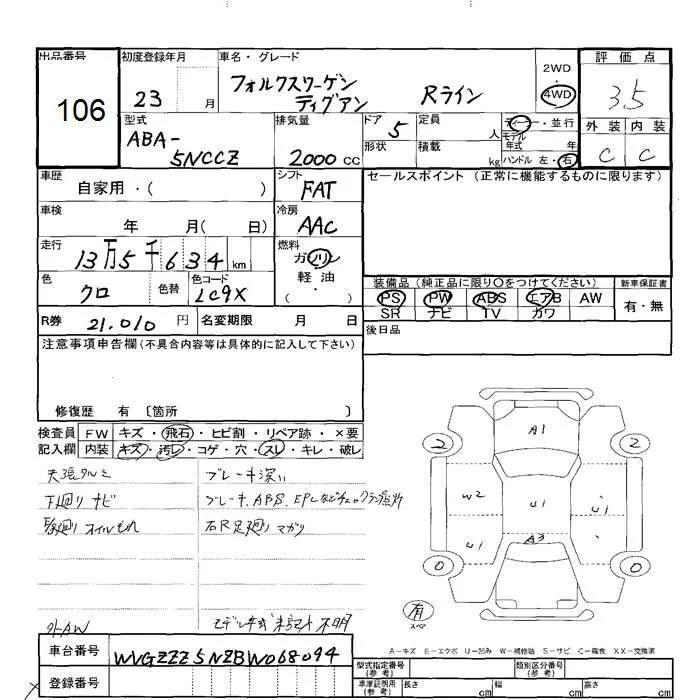 出品番号 初度登録年月 車名・グレード 評価点
106
23 月 フォルクスワーゲン ティグアン Rライン 2WD 4WD 3.5
外装 内装
C C
型式 排気量 ドア 定員 ディーラー・並行
ABA-5NCCZ 2000 cc 5 人 モデル年式 年
形状 積載 kg ハンドル 左・右
車歴 シフト セールスポイント (正常に機能するものに限ります)
自家用・( ) FAT
車検 冷房
年 月( 日) AAC
走行 燃料
13万5千634 km ガソリン
軽油・( )
色 色替 色コード
クロ LC9X
装備品 (純正品に限り○をつけてください) 新車保証書
PS PW ABS エアB AW 有・無
SR ナビ TV カワ
R券 21,010 円 名変期限 月 日 後日品
注意事項申告欄(不具合内容等は具体的に記入して下さい)
修復歴 有 〔箇所 〕
検査員 FW キズ・飛石・ヒビ割・リペア跡・×要
記入欄 内装 キズ・汚レ・コゲ・穴・スレ・キレ・破レ
天張タルミ ブレーキ深い
下廻りサビ ブレーキ、ABS、EPCなどチェックランプ点灯
オイルもれ 右R足廻りマガリ
外AW モデル年式 未記入 不明
A1
2 2
W2 U1 U1
U1 A3 U1
0 0
有
スペア
A-キズ E-エクボ U-凹み W-補修跡 S-サビ C-腐食 XX-交換済
車台番号 WVGZZZ5NZBW068094
登録番号
型式指定番号(参考) 類別区分番号(参考)
車庫証明用(参考) 長さ cm 幅 cm 高さ cm